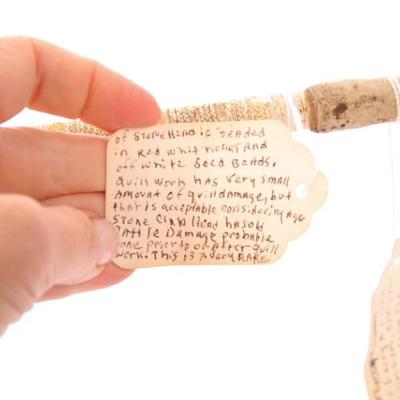 of Stone Head is beaded
in Red white Hearts and
off white Seed Beads.
Quill work has very small
Amount of quill damage, but
that is acceptable considering age
Stone Club Head has old
Battle Damage probable
done prior to or After quill
work. This is A very RARE